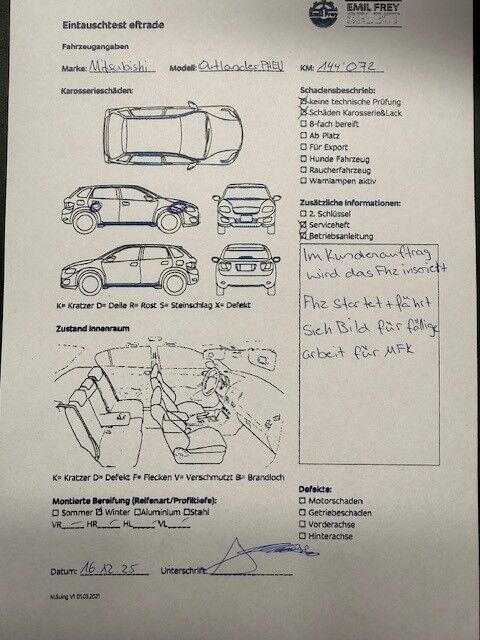 Emil Frey
EMIL FREY
SELECT
Eintauschtest eftrade
Fahrzeugangaben
Marke: Mitsubishi Modell: Outlander PHEV KM: 144'072
Karosserieschäden:
Schadensbeschrieb:
☒ keine technische Prüfung
☒ Schäden Karosserie&Lack
☐ 8-fach bereift
☐ Ab Platz
☐ Für Export
☐ Hunde Fahrzeug
☐ Raucherfahrzeug
☐ Warnlampen aktiv
Zusätzliche Informationen:
☐ 2. Schlüssel
☒ Serviceheft
☒ Betriebsanleitung
Im Kundenauftrag
wird das Fhz inseriert
Fhz startet + fährt
Sieh Bild für fällige
arbeit für MFK
K= Kratzer D= Delle R= Rost S= Steinschlag X= Defekt
Zustand Innenraum
K= Kratzer D= Defekt F= Flecken V= Verschmutzt B= Brandloch
Montierte Bereifung (Reifenart/Profiltiefe):
☐ Sommer ☒ Winter ☐ Aluminium ☐ Stahl
VR HR HL VL
Defekte:
☐ Motorschaden
☐ Getriebeschaden
☐ Vorderachse
☐ Hinterachse
Datum: 16.12.25 Unterschrift:
M.Suing V1 01.03.2021